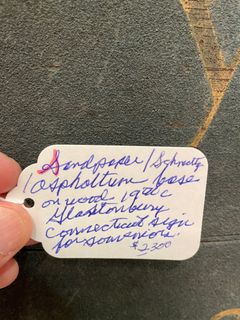 Sandpaper/Schmaltz
/asphaltum base
on wood 19th c
Glastonbury
Connecticut sign
for souveniors.
$2300